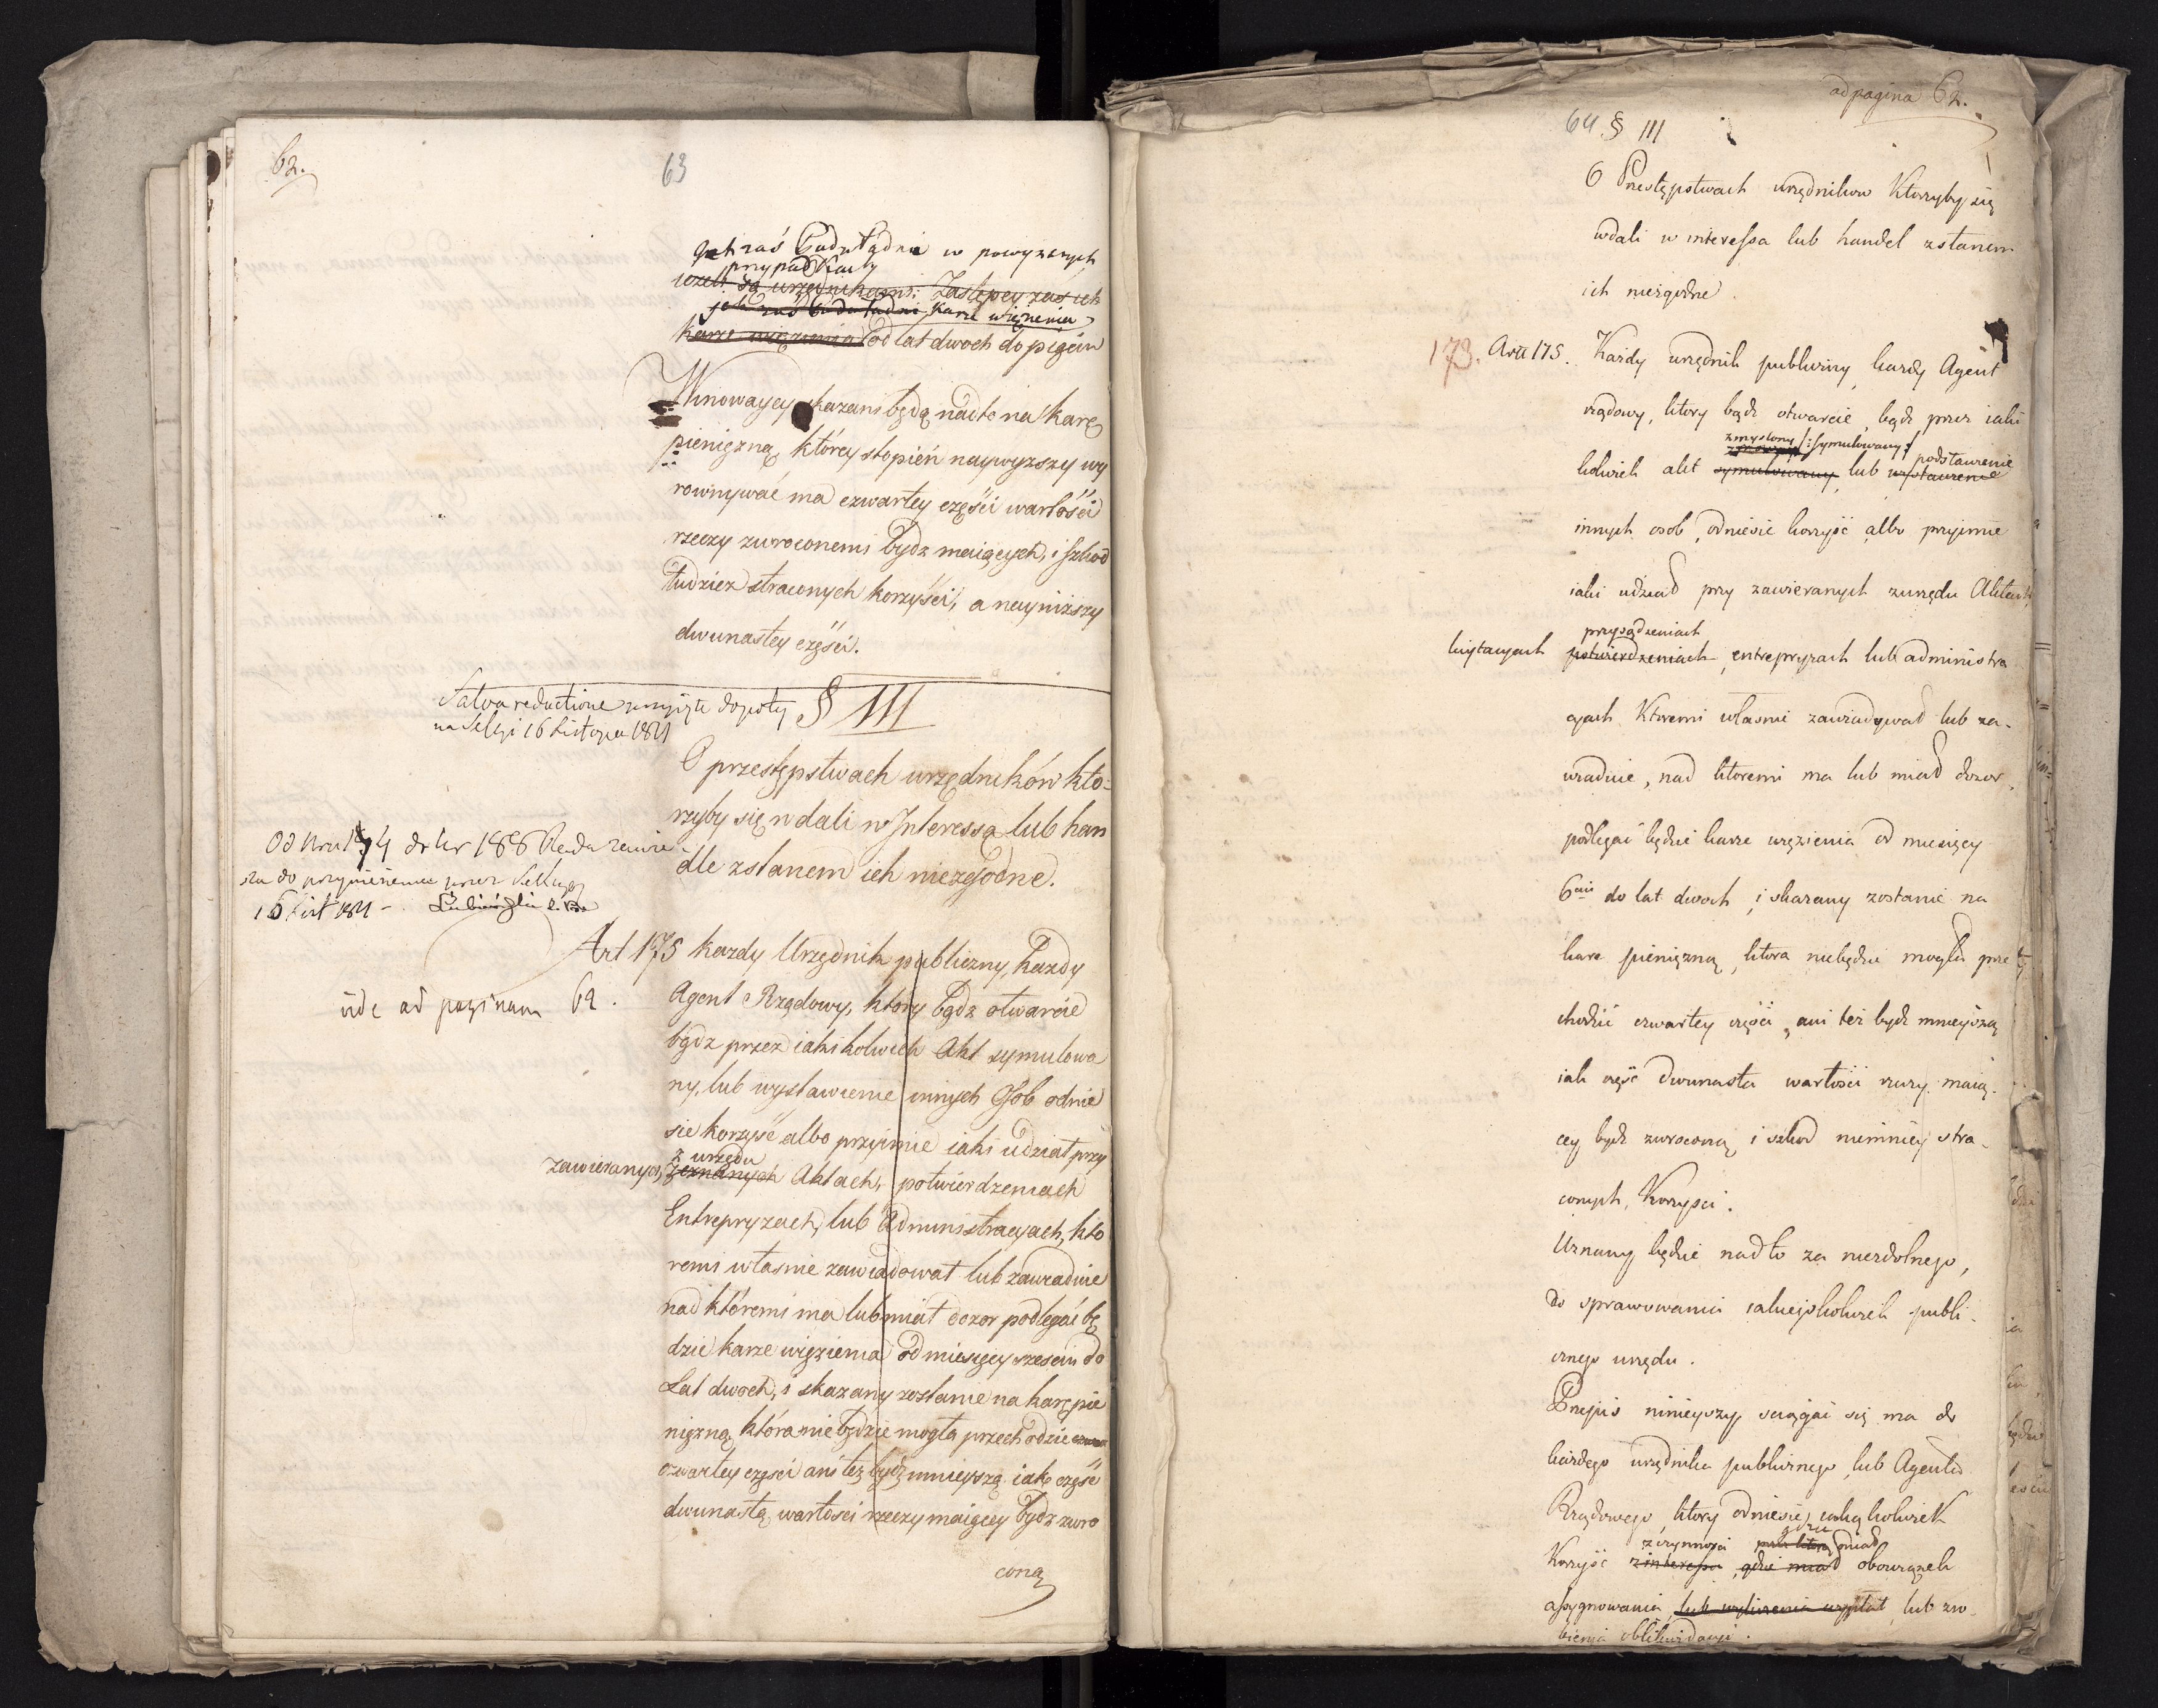 62.
63
jeżeli są urzędnikami. Zastępcy zaś ich
przypadkach
karze więzienia
karze więzienia od lat dwoch do pięciu
Winowaycy skazani będą nadto na karę
pieniężną, którey stopień naywyzszy wy
rownywać ma czwartey części wartości
rzeczy zwroconemi bydz maiących, i szkod
tudziez straconych korzyści, a naynizszy
dwunastey części.
Salva redactione przyięte dopoty
na Sessyi 16 Listopa 1821
§ III
O przestępstwach urzędników kto=
rzyby się wdali w Interessa lub han
dle zstanem ich niezgodne.
16 List 1821 -
Art 175 kazdy Urzędnik publiczny, kazdy
vide ad paginam 62.
Agent Rządowy, ktory bądz otwarcie
bądz przez iakikolwiek Akt symulowa
ny, lub wystawienie innych Osob odnie
sie korzyść albo przyimie iaki udział przy
z urzędu
zawieranych, zeznanych Aktach, potwierdzeniach
Entrepryzach, lub Administracyach, kto
remi własnie zawiadował lub zawiaduie
nad któremi ma lub miał dozor podlegać bę
dzie karze więzienia od miesięcy szesciu do
Lat dwoch, i skazany zostanie na karę pie
nięzną, która nie będzie mogła przechodzić
czwartey części ani tez bydz mnieyszą iak część
dwunastą wartosci rzeczy maiącey bydz zwro
coną
ad pagina 62.
64. § III
O Przestępstwach urzędnikow Ktorzyby się
wdali w interessa lub handel zstanem
ich niezgodne
173. Art 175. Każdy urzędnik publiczny, każdy Agent
rządowy, ktory bądz otwarcie, bądz przez iaki
zmyslony /: symulowany :/ podstawienie
kolwiek akt symulowany, lub wystawienie
innych osob, odniesie korzyść albo przyimie
iaki udział przy zawieranych zurzędu Aktach,
przysądzeniach
licytacyach potwierdzeniach, entrepryzach lub administra
cyach, Ktoremi własnie zawiadywał lub za-
wiaduie, nad ktoremi ma lub miał dozor,
podlegać będzie karze więzienia od miesięcy
6ciu do lat dwoch, i skazany zostanie na
kare pienięzną, ktora niebędzie mogła prze
chodzić czwartey części, ani też bydz mnieyszą
iak część dwunasta wartości rzeczy maią-
cey bydz zwroconą, i szkod niemniey stra-
conych, Korzyści.
Uznany będzie nadto za niezdolnego,
do sprawowania iakieykolwiek publi-
cznego urzędu.
Przepis ninieyszy sciągać się ma do
każdego urzędnika publicznego, lub Agenta
Rządowego, ktory odniesie, iakąkolwiek
gdzie
z czynnosci przez ktorą miał
Korzyść z interessu, gdzie miał obowiązek
assygnowania, lub wyliczenia wypłat, lub zro-
bienia oblikwidacyi.